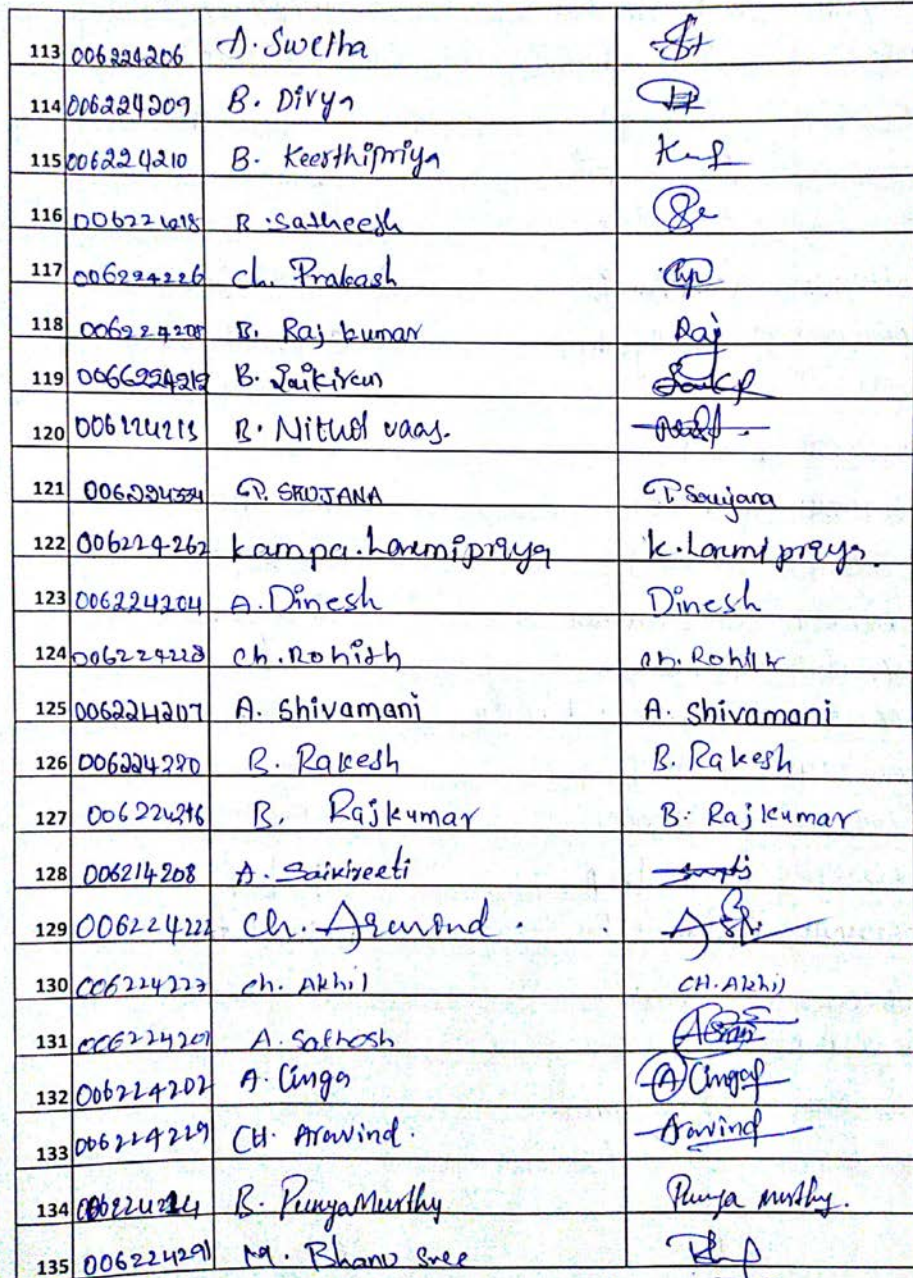 113 006224206 D. Swetha
114 006224209 B. Divya
115 006224210 B. Keerthipriya Kuf
116 B. Satheesh
117 006224226 Ch. Prakash
118 006224208 B. Raj kumar Raj
119 0066224212 B. Saikiran
120 B. Nithol vaas.
121 P. SRUJANA P Srujana
122 006224262 Kampa. Laxmipriya K. Laxmi priya.
123 006224204 A. Dinesh Dinesh
124 006224228 Ch. Rohith Ch. Rohith
125 006224207 A. Shivamani A. Shivamani
126 006224220 B. Rakesh B. Rakesh
127 006224216 B. Rajkumar B. Rajkumar
128 006214208 A. Saikireeti
129 006224222 Ch. Aravind.
130 006224223 Ch. Akhil CH. Akhil
131 006224201 A. Sathosh
132 006224202 A. Linga A Linga
133 006224229 CH. Aravind. Aravind
134 B. PunyaMurthy Punya murthy.
135 006224291 M. Bhanu Sree